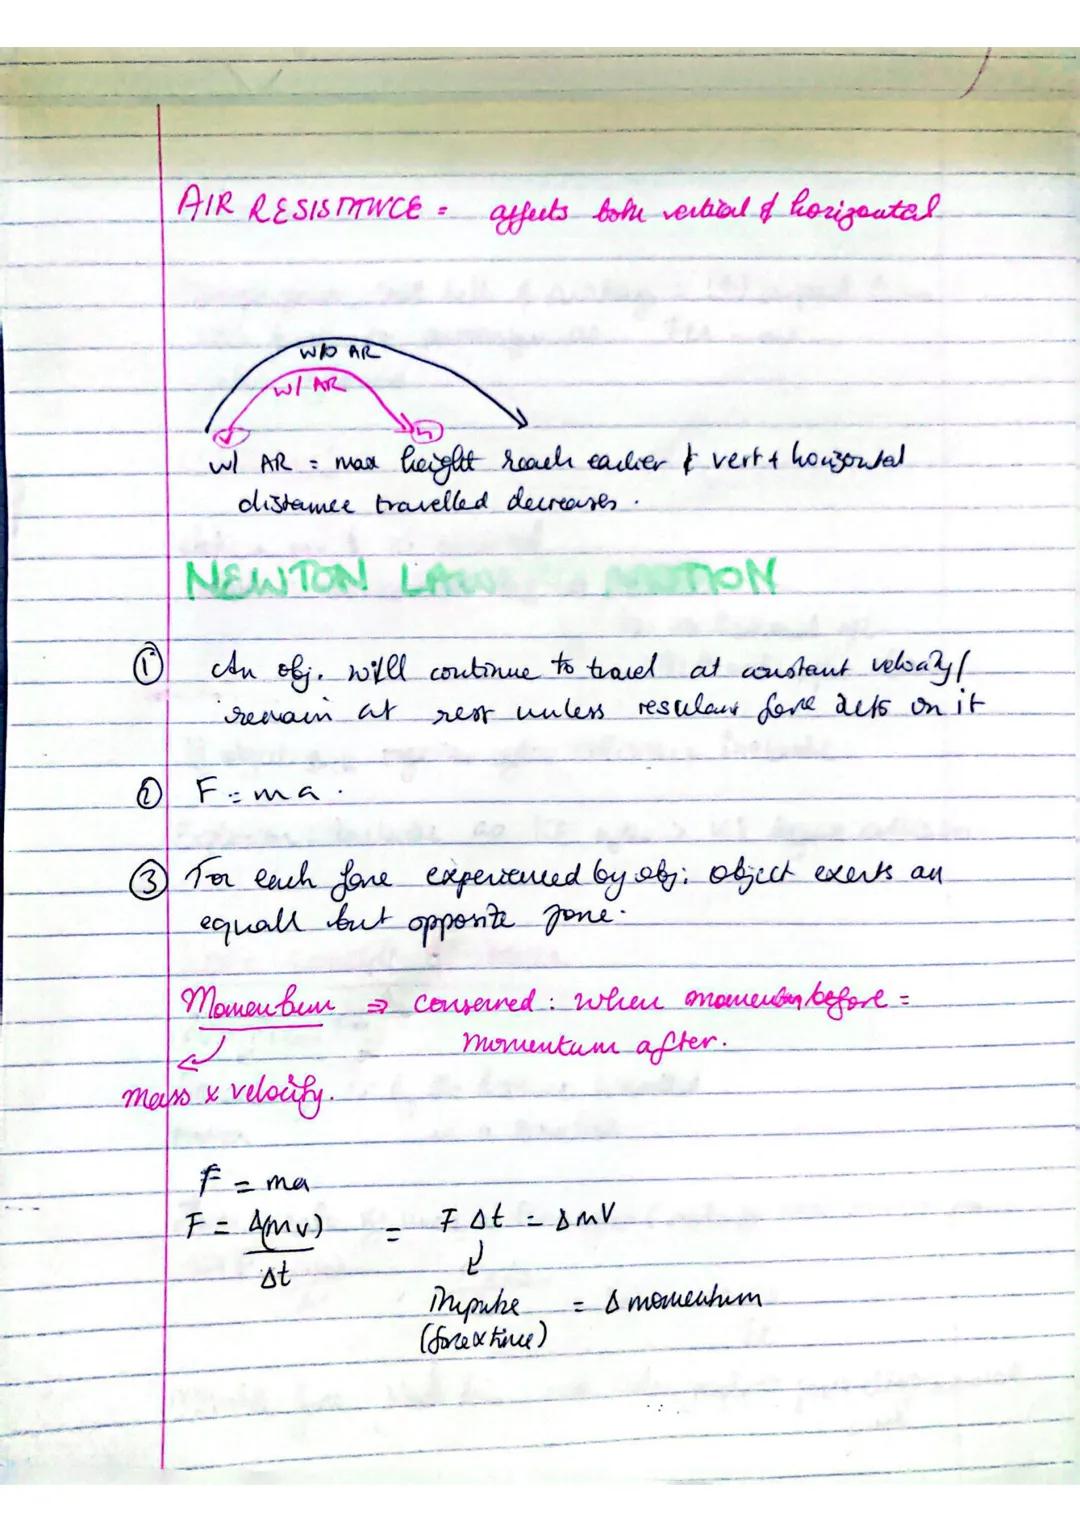 AIR RESISTANCE = affects both vertical & horizontal
W/O AR
W/ AR
W/ AR = max height reach earlier & vert + horizontal
distance travelled decreases.
NEWTON LAW MOTION
① An obj. will continue to travel at constant velocity/
remain at rest unless resultant force acts on it
② F = ma.
③ For each force experienced by obj; object exerts an
equall but opposite force.
Momentum ⇒ conserved : when momentum before =
momentum after.
mass x velocity.
F = ma
F = Δ(mv) = F Δt = ΔmV
Δt
Impulse = Δ momentum
(force x time)